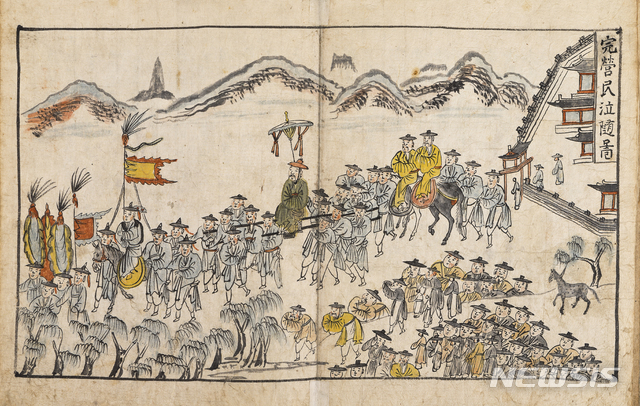 完營民泣隨圖
NEWSIS